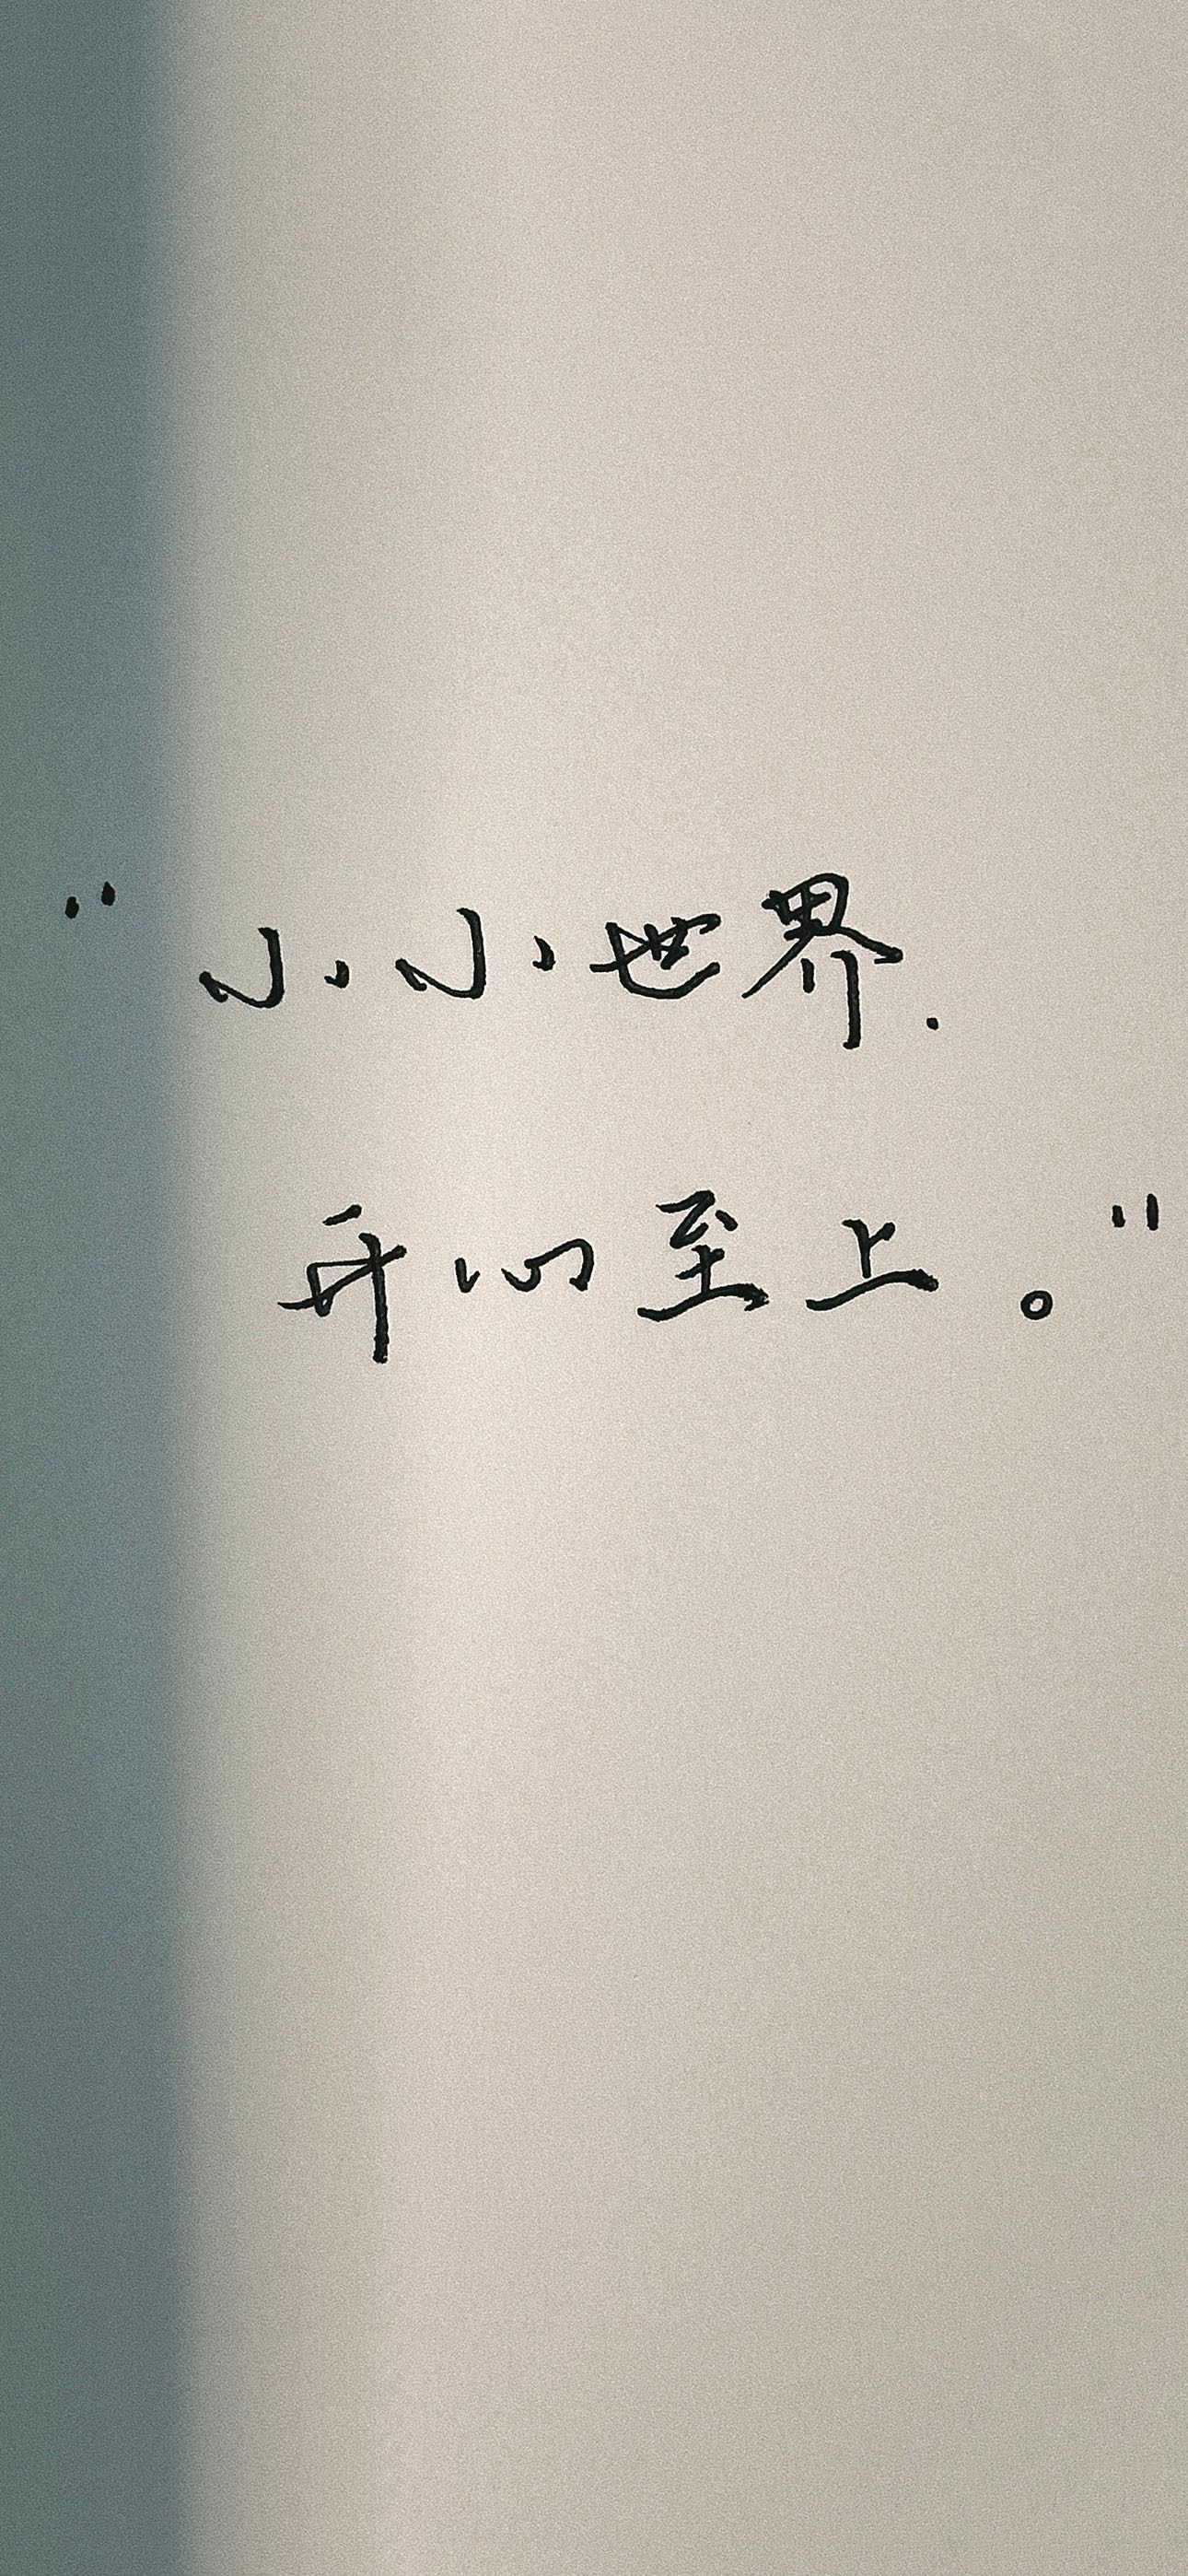 “小小世界.
开心至上。”